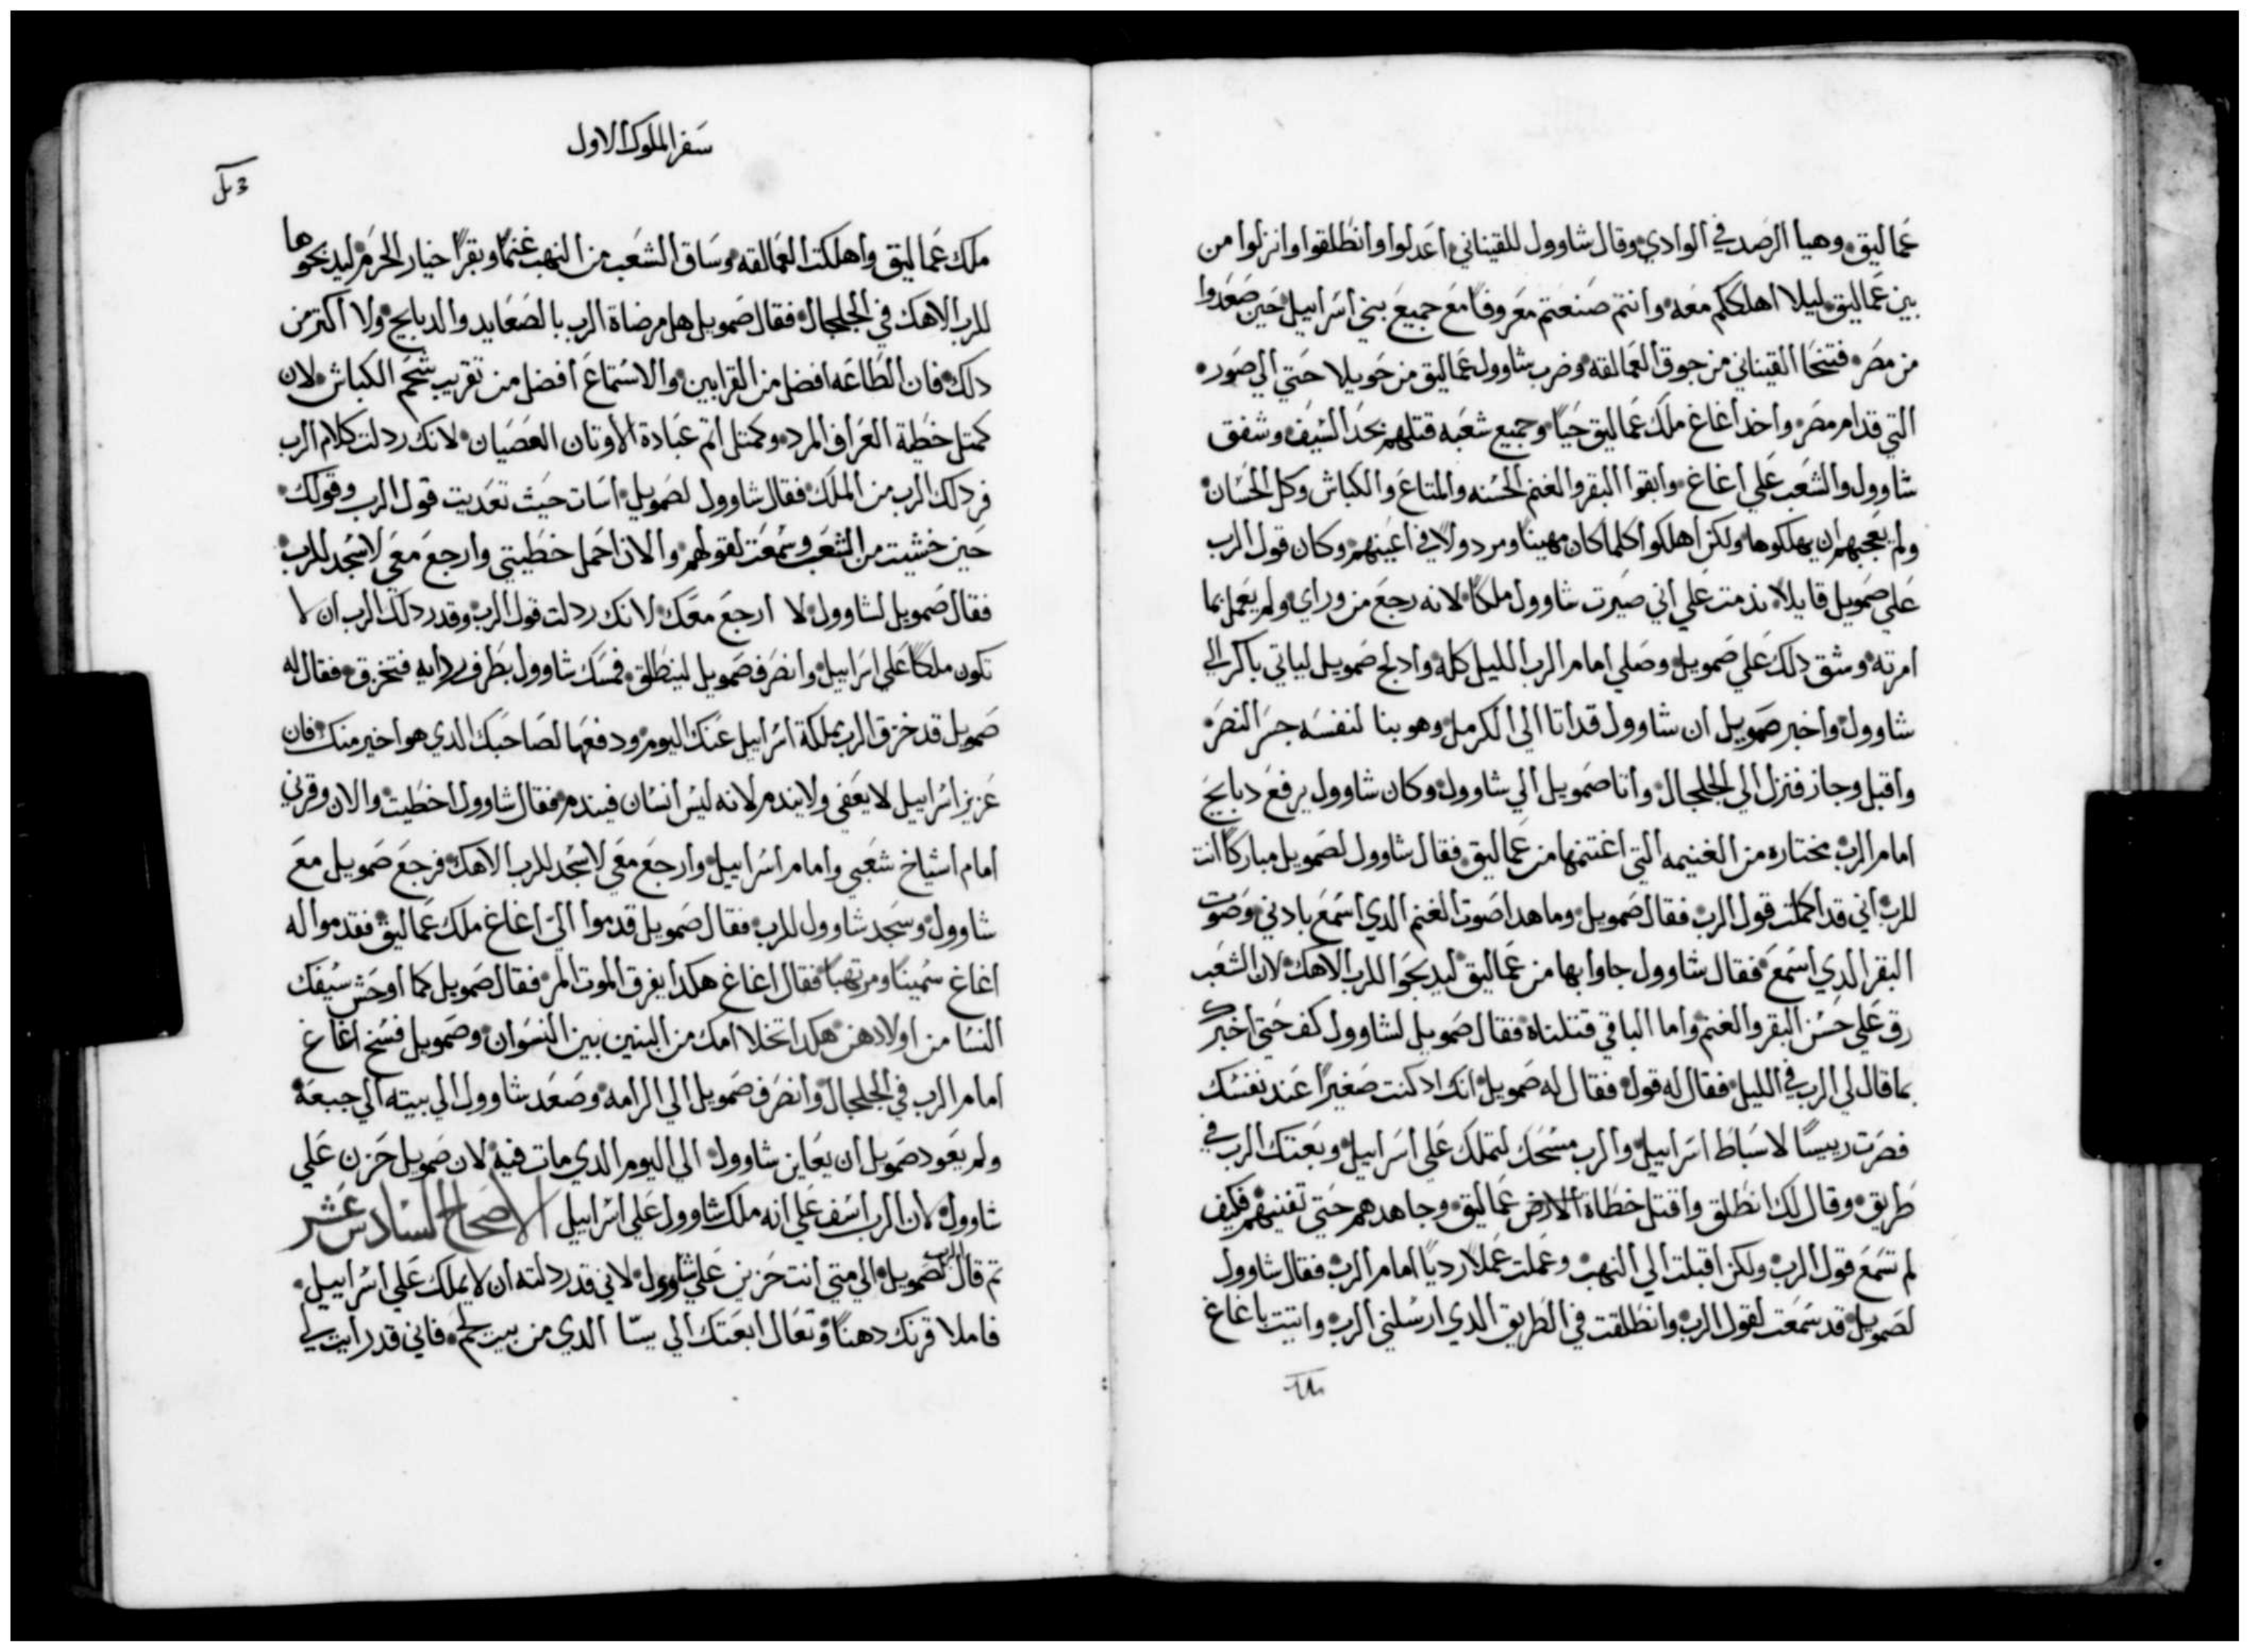 عماليق وهيا الرصد في الوادي وقال شاوول للقيناني اعدلوا وانطلقوا وانزلوا من
بين عماليق ليلا اهلككم معه وانتم صنعتم معروفًا مع جميع بني اسراييل حين صعدوا
من مصر فتنحا القيناني من جوق العمالقه وضرب شاوول عماليق من حويلا حتي الي صور
التي قدام مصر واخد اغاغ ملك عماليق حيًا وجميع شعبه قتلهم بحد السيف وشفق
شاوول والشعب علي اغاغ وابقوا البقر والغنم الحسنه والمتاع والكباش وكل الحسان
ولم يعجبهم ان يهلكوها ولكن اهلكوا كلما كان مهينًا ومردولا في اعينهم وكان قول الرب
علي صمويل قايلاً ندمت علي اني صيرت شاوول ملكًا لانه رجع من وراي ولم يعمل بما
امرته وشق دلك علي صمويل وصلي امام الرب الليل كله وادلج صمويل لياتي باكر الي
شاوول واخبر صمويل ان شاوول قد اتا الي الكرمل وهو بنا لنفسه جسر النصر
واقبل وجاز فنزل الي الجلجال واتا صمويل الي شاوول وكان شاوول يرفع دبايح
امام الرب مختاره من الغنيمه التي اغتنمها من عماليق فقال شاوول لصمويل مباركًا انت
للرب اني قد اكملت قول الرب فقال صمويل وما هدا صوت الغنم الدي اسمع بادني وصوت
البقر الدي اسمع فقال شاوول جاوا بها من عماليق ليدبحوا للرب الاهك لان الشعب
رق علي حسن البقر والغنم واما الباقي قتلناه فقال صمويل لشاوول كف حتي اخبرك
بما قال لي الرب في الليل فقال له قول فقال له صمويل انك اد كنت صغيرًا عند نفسك
فصرت رييسًا لاسباط اسراييل والرب مسحك لتملك علي اسراييل وبعتك الرب في
طريق وقال لك انطلق واقتل خطاة الارض عماليق وجاهدهم حتي تفنيهم فكيف
لم تسمع قول الرب ولكن اقبلت الي النهب وعملت عملاً رديًا امام الرب فقال شاوول
لصمويل قد سمعت لقول الرب وانطلقت في الطريق الدي ارسلني الرب واتيت باغاغ
سفر الملوك الاول
ملك عماليق واهلكت العمالقه وساق الشعب من النهب غنمًا وبقرًا خيار الحرم ليدبحوها
للرب الاهك في الجلجال فقال صمويل هل مرضاة الرب بالصعايد والدبايح ولا اكتر من
دلك فان الطاعه افضل من القرابين والاستماع افضل من تقريب شحم الكباش لان
كمتل خطية العراف المرد وكمتل اتم عبادة الاوتان العصيان لانك ردلت كلام الرب
فردلك الرب من الملك فقال شاوول لصمويل اسات حيت تعديت قول الرب وقولك
حين خشيت من الشعب وسمعت لقولهم والان احمل خطيتي وارجع معي لاسجد للرب
فقال صمويل لشاوول لا ارجع معك لانك ردلت قول الرب وقد ردلك الرب ان لا
تكون ملكًا علي اسراييل وانصرف صمويل لينطلق فمسك شاوول بطرف ردايه فتخزق فقال له
صمويل قد خزق الرب مملكة اسراييل عنك اليوم ودفعها لصاحبك الدي هو اخير منك فان
عزيز اسراييل لا يعفي ولا يندم لانه ليس انسان فيندم فقال شاوول اخطيت والان وقرني
امام اشياخ شعبي وامام اسراييل وارجع معي لاسجد للرب الاهك فرجع صمويل مع
شاوول وسجد شاوول للرب فقال صمويل قدموا الي اغاغ ملك عماليق فقدموا له
اغاغ سمينًا ومرتهبًا فقال اغاغ هكدا يفرق الموت المر فقال صمويل كما اوحش سيفك
النسا من اولادهن هكدا تخلا امك من البنين بين النسوان وصمويل فسخ اغاغ
امام الرب في الجلجال وانصرف صمويل الي الرامه وصعد شاوول الي بيته الي جبعة
ولم يعود صمويل ان يعاين شاوول الي اليوم الدي مات فيه لان صمويل حزن علي
شاوول لان الرب اسف علي انه ملك شاوول علي اسراييل الاصحاح السادس عشر
تم قال الرب لصمويل الي متي انت حزين علي شاوول لاني قد ردلته ان لا يملك علي اسراييل
فاملا قرنك دهنًا وتعال ابعتك الي يسّا الدي من بيت لحم فاني قد رايت لي